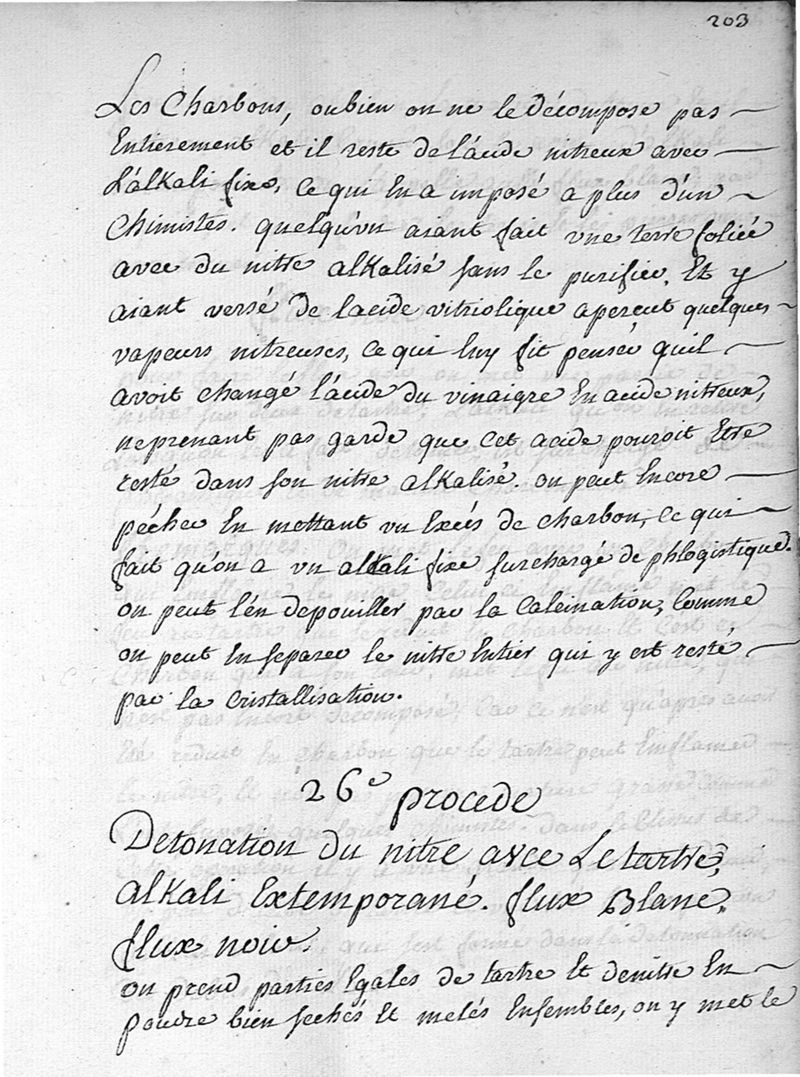 203
Les Charbons, oubien on ne le décompose pas
Entierement et il reste de l'acide nitreux avec
L'alkali fixe, ce qui En a imposé a plus d'un
Chimistes. quelqu'vn aiant fait vne terre foliée
avec du nitre alkalisé sans le purifier, Et y
aiant versé de lacide vitriolique aperçut quelques
vapeurs nitreuses, ce qui luy fit penser quil
avoit changé l'acide du vinaigre En acide nitreux,
ne prenant pas garde que cet acide pouroit Etre
resté dans son nitre alkalisé. on peut Encore
pécher En mettant vn Excés de charbon, ce qui
fait qu'on a vn alkali fixe surchargé de phlogistique.
on peut l'en depouiller par la Calcination, Comme
on peut En separer le nitre Entier qui y est resté
par la Cristallisation.
26e procede
Detonation du nitre avec Le tartre,
alkali Extemporané. flux Blanc,
flux noir.
on prend parties Egales de tartre Et de nitre En
poudre bien sechés Et melés Ensembles, on y met le